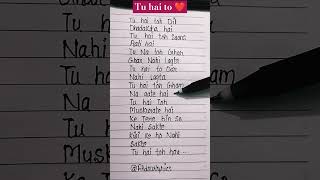 Tu hai to ❤️
Tu hai toh Dil
Dhadakta hai
Tu hai toh Saans
Aati hai
Tu Na toh Ghar
Ghar Nahi Lagta
Tu hai to Darr
Nahi Lagta
Tu hai toh Gham
Na aate hai
Tu hai Toh
Muskurate hai
Ke Tere bin Se
Nahi Sakte
Kisi ke ho Nahi
Sakte
Tu hai toh hai...